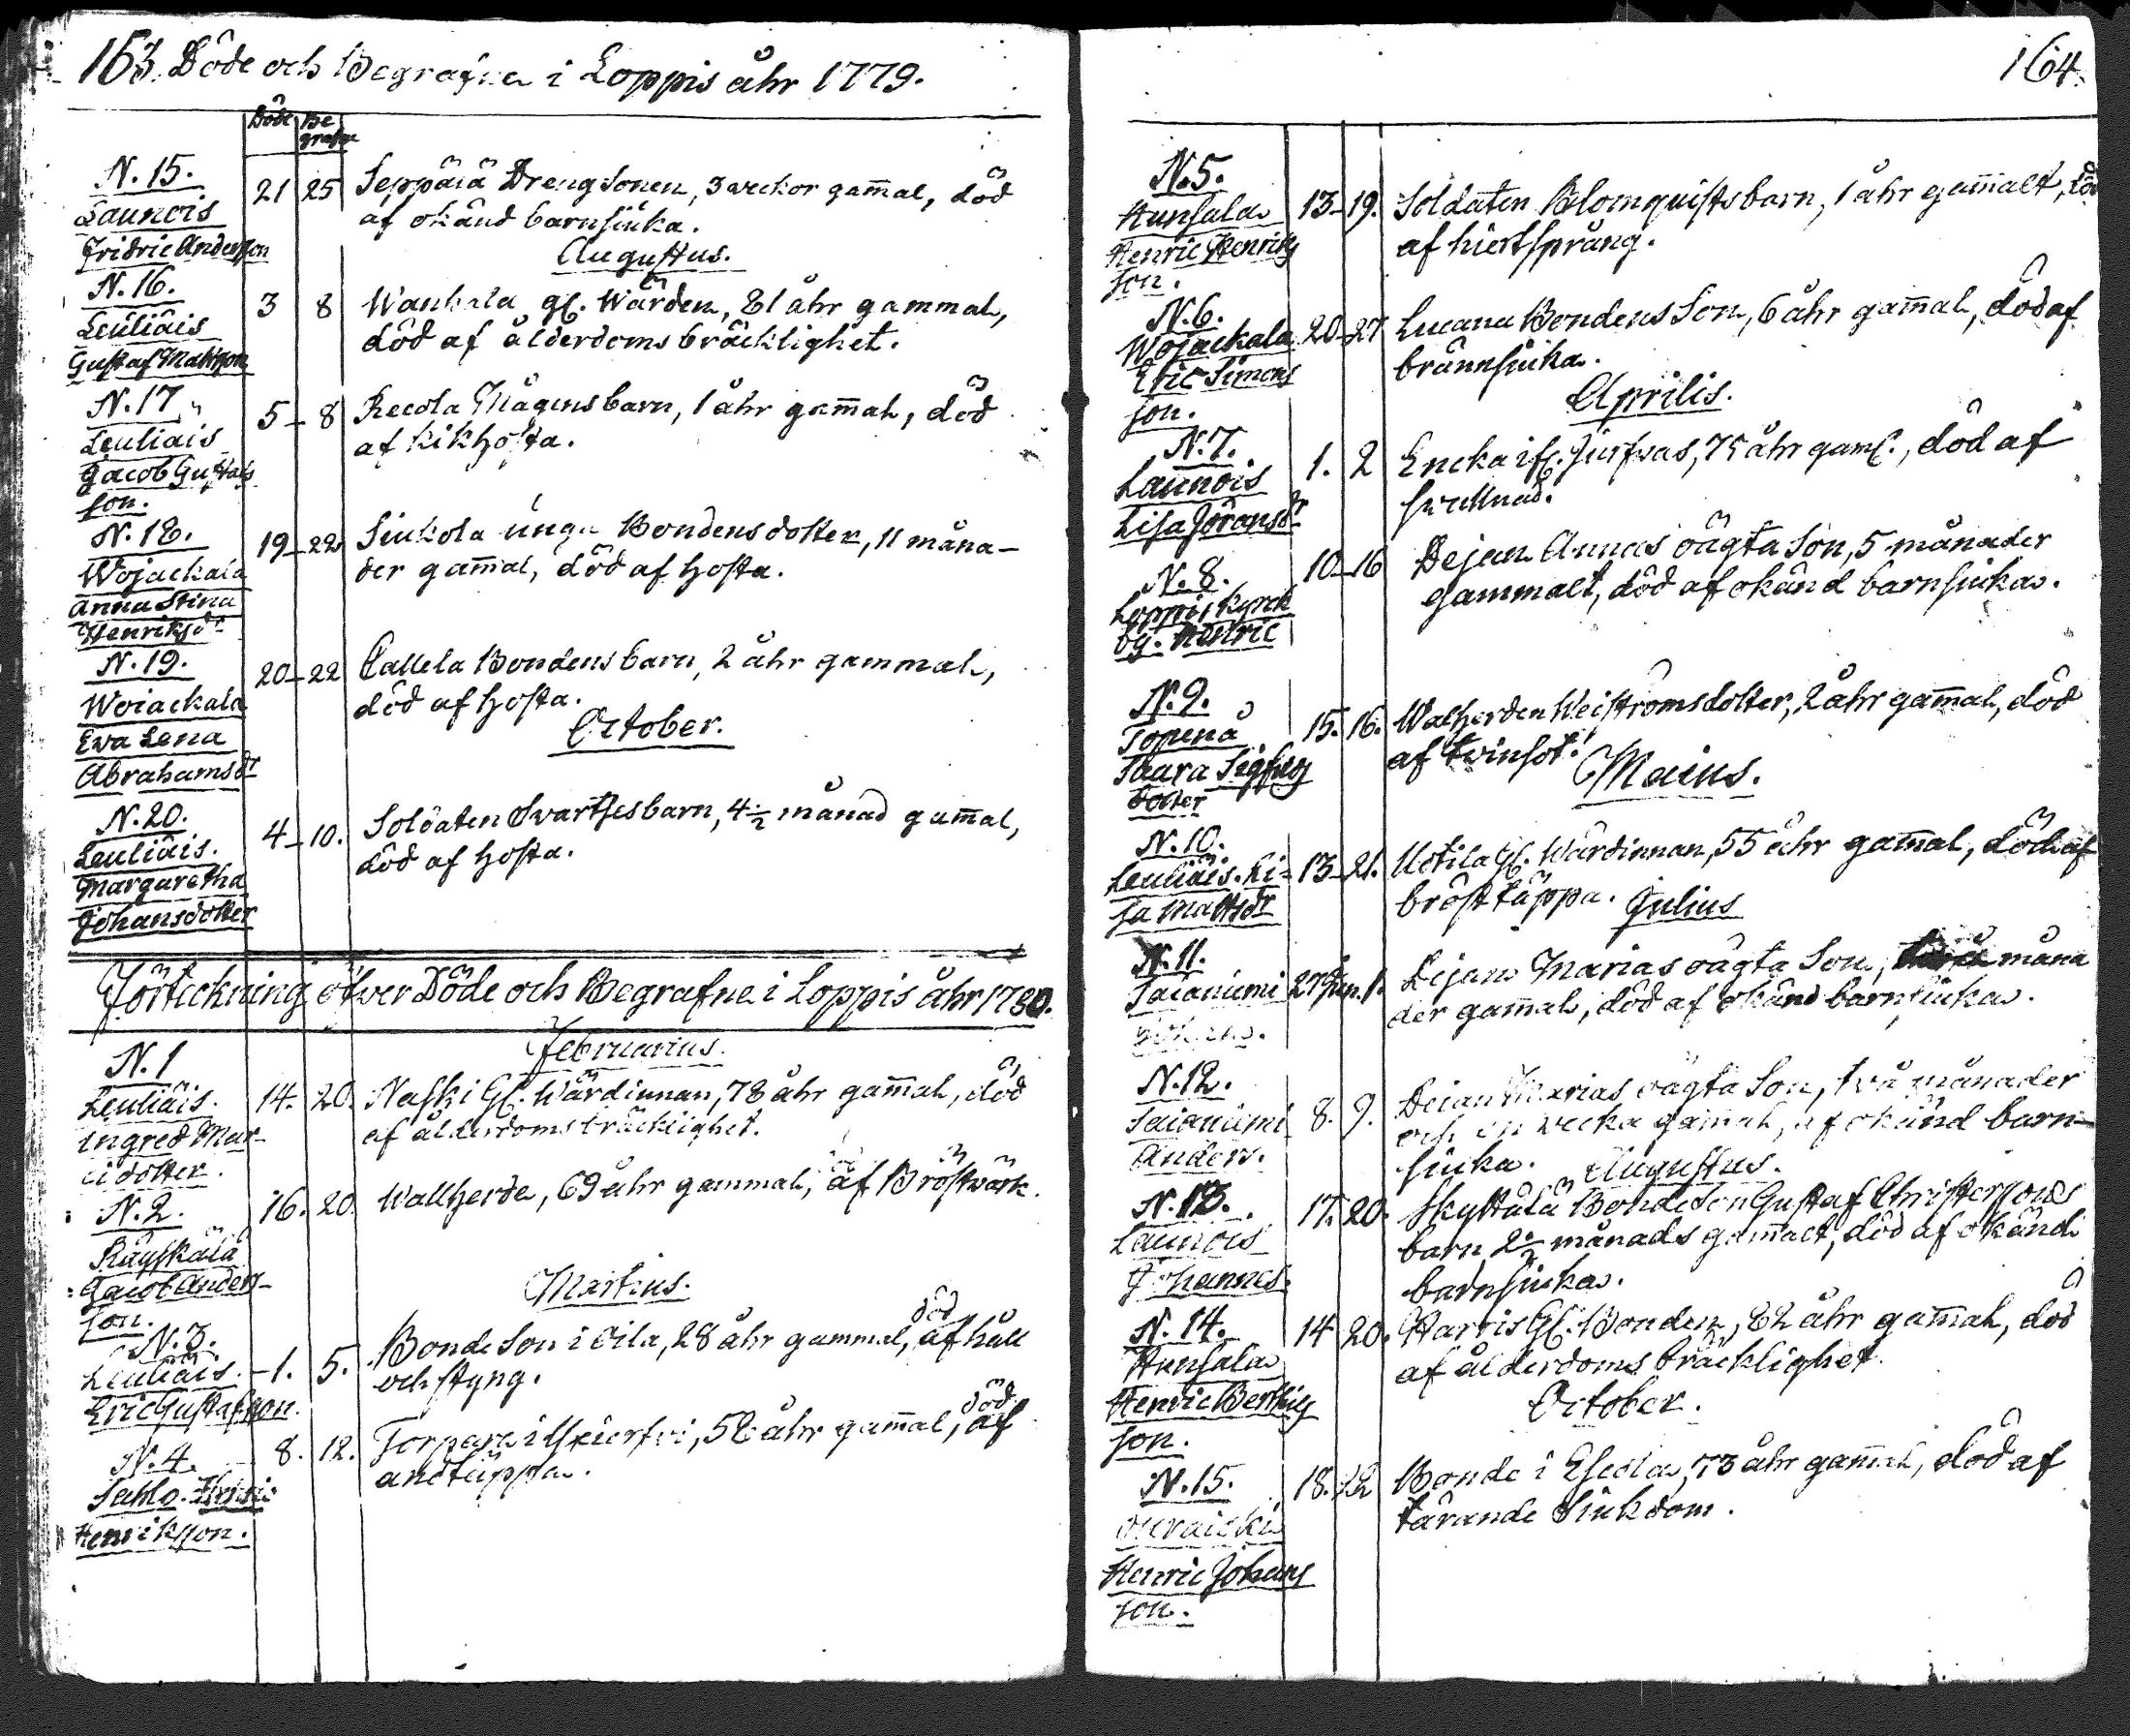 153. Döde och Begrafne i Loppis åhr 1779.
Döde Be
grafne
N. 15.
Launois
Fridric Andersson
21 25 Seppälä Drengsonen, 3 veckor gam̄al, död
af okänd barnsiuka.
Augustus.
N. 16.
Leuliäis
Gustaf Mattsson
3 8 Wanhala gl. Wärden, 81 åhr gammal,
död af ålderdoms bräcklighet.
N. 17.
Leuliais
Jacob Gustafs
son.
5 - 8 Recola Mågens barn, 1 åhr gam̄al, död
af kikhosta.
N. 18.
Wojackala
Anna Stina
Henriksdr
19 - 22 Siukola unga Bondens dotter, 11 måna-
der gam̄al, död af hosta.
N. 19.
Woiackala
Eva Lena
Abrahamsdr
20 - 22 Callela Bondens barn, 2 åhr gammal,
död af hosta.
October.
N. 20.
Leuliäis.
Margaretha
Johansdotter
4 - 10. Soldaten Svartses barn, 4 1/2 månad gam̄al,
död af hosta.
Förteckning öfwer Döde och Begrafne i Loppis åhr 1780.
Februarius.
N. 1
Leuliäis.
Ingred Mar-
dotter.
14. 20. Naski Gl. Wärdinnan, 78 åhr gam̄al, död
af ålderdoms bräcklighet.
N. 2.
Räyskälä
Jacob Anders-
son.
16. 20. Wallherde, 69 åhr gammal, död af Bröstwärk.
Martius.
N. 3.
Leuliäis.
Eric Gustafsson.
- 1. 5. Bonde Son i Oila, 28 åhr gammal, död af håll
och styng.
N. 4.
Sahlo.
Henriksson.
8. 12. Torpare i, 58 åhr gam̄al, död af
andtäppa.
164.
N. 5.
Hunsala
Henric Henriks
son.
13 - 19. Soldaten Blomquists barn, 1 åhr gam̄alt, död
af hiertsprång.
N. 6.
Wojackala
Eric Simons
son.
20 - 27 Lucana Bondens Son, 6 åhr gam̄al, död af
brännsiuka.
Aprilis.
N. 7.
Launois
Lisa Göransdr
1. 2 Encka 75 åhr gaml., död af
swullnad.
N. 8.
Loppis kyrck
by. Henric
10 - 16 Dejan Annas oägta Son, 5 månader
gammalt, död af okänd barnsiuka.
N. 9.
Topenå
Saara Sigfrids
dotter
15. 16. Walherden Weiströms dotter, 2 åhr gam̄al, död
af twinsot.
Maius.
N. 10.
Leuliäis. Li-
sa Mattsdr
13 - 21. Uotila Gl. Wärdinnan, 55 åhr gam̄al, död af
brösttäppa.
Julius
N. 11.
Saianiemi
27 Jun. 1. Dejan Marias oägta Son, måna
der gam̄al, död af okänd barnsiuka.
N. 12.
Saianiemi
Anders.
8. 9. Deian Marias oägta Son, två månader
och en wecka gam̄al, af okänd barn-
siuka.
Augustus.
N. 13.
Launois
Johannes.
17. 20. Skyttälä Bondeson Gustaf Christerssons
barn 2 1/2 månads gam̄alt, död af okänd
barnsiuka.
N. 14.
Hunsala
Henric Bertils
son.
14 20. Harris Gl. Bonden, 82 åhr gam̄al, död
af ålderdoms bräcklighet.
October.
N. 15.
Henric Johans
son.
18. 22 Bonde i Eseola, 73 åhr gam̄al, död af
tärande Siukdom.